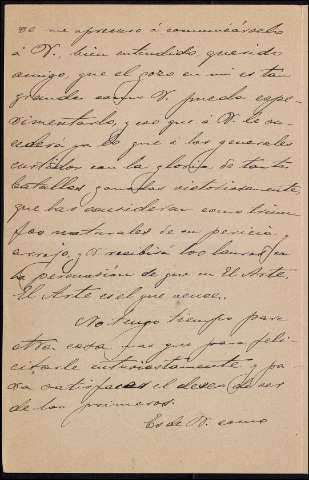 me apresuro á comunicárselo
á V., bien entendido, querido
amigo, que el gozo en mi es tan
grande como V. pueda espe-
rimentarlo, y eso que á V. le su-
cederá ya lo que á los generales
curtidos con la gloria de tanta
batallas ganadas victoriosamente,
que las consideran como triun-
fos naturales de su pericia y
arrojo, y V. recibirá los lauros en
la persuasión de que en El Arte
El Arte es el que vence.
No tengo tiempo para
otra cosa mas que para feli-
citarle entusiastamente y pa-
ra satisfacer el deseo de ser
de los primeros.
Es de V. como